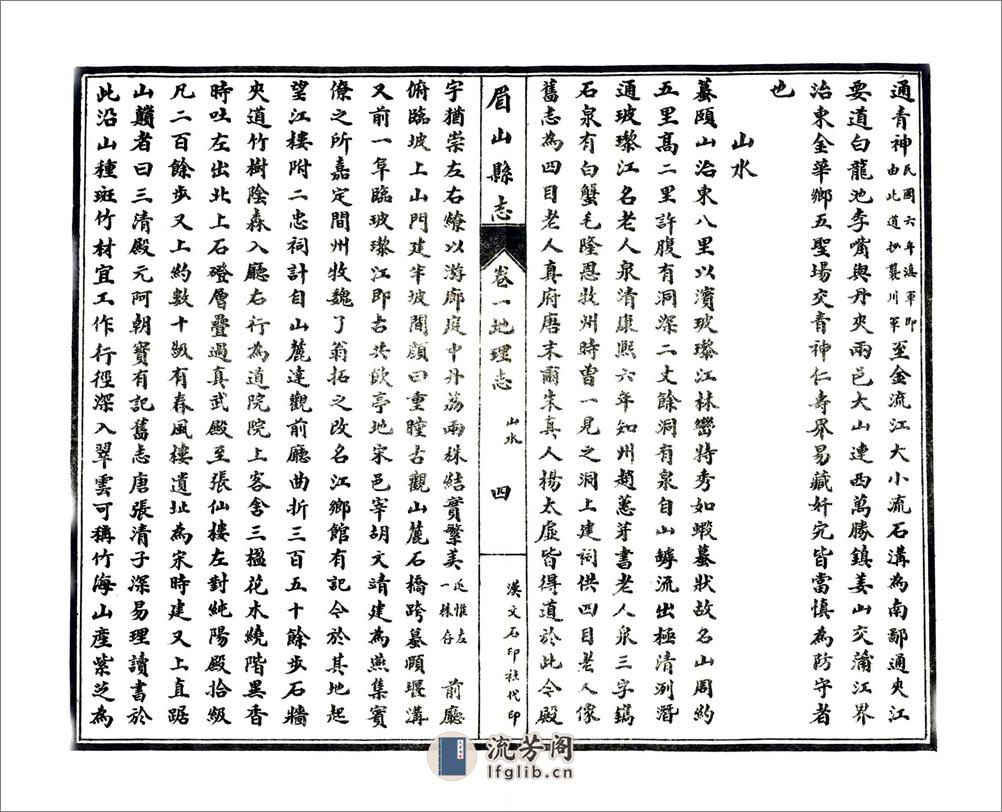 通青神民國六年滇軍即由此道抄襲川軍至金流江大小流石溝為南鄙通夾江
要道白龍池李嘴與丹夾兩邑大山連西萬勝鎮姜山交蒲江界
治東金華鄉五聖場交青神仁壽界易藏奸宄皆當慎為防守者
也
山水
蟇頤山治東八里以濱玻瓈江林巒特秀如蝦蟇狀故名山周約
五里高二里許腹有洞深二丈餘洞有泉自山罅流出極清洌潛
通玻瓈江名老人泉清康熙六年知州趙蕙芽書老人泉三字鐫
石泉有白蟹毛隆恩牧州時曾一見之洞上建祠供四目老人像
舊志為四目老人真府唐末爾朱真人楊太虛皆得道於此今殿
眉山縣志
卷一地理志
山水
四
漢文石印社代印
宇猶崇左右繚以游廊庭中丹荔兩株結實繁美近惟左一株存前廳
俯臨坡上山門建半坡間顏曰重瞳古觀山麓石橋跨蟇頤堰溝
又前一阜臨玻瓈江即古共飲亭地宋邑宰胡文靖建為燕集賓
僚之所嘉定間州牧魏了翁拓之改名江鄉館有記今於其地起
望江樓附二忠祠計自山麓達觀前廳曲折三百五十餘步石牆
夾道竹樹陰森入廳右行為道院院上客舍三楹花木繞階異香
時吐左出北上石磴層疊過真武殿至張仙樓左對純陽殿拾級
凡二百餘步又上約數十級有春風樓遺址為宋時建又上直踞
山巔者曰三清殿元阿朝寶有記舊志唐張清子深易理讀書於
此沿山種斑竹材宜工作行徑深入翠雲可稱竹海山產紫芝為
流芳阁
lfglib.cn